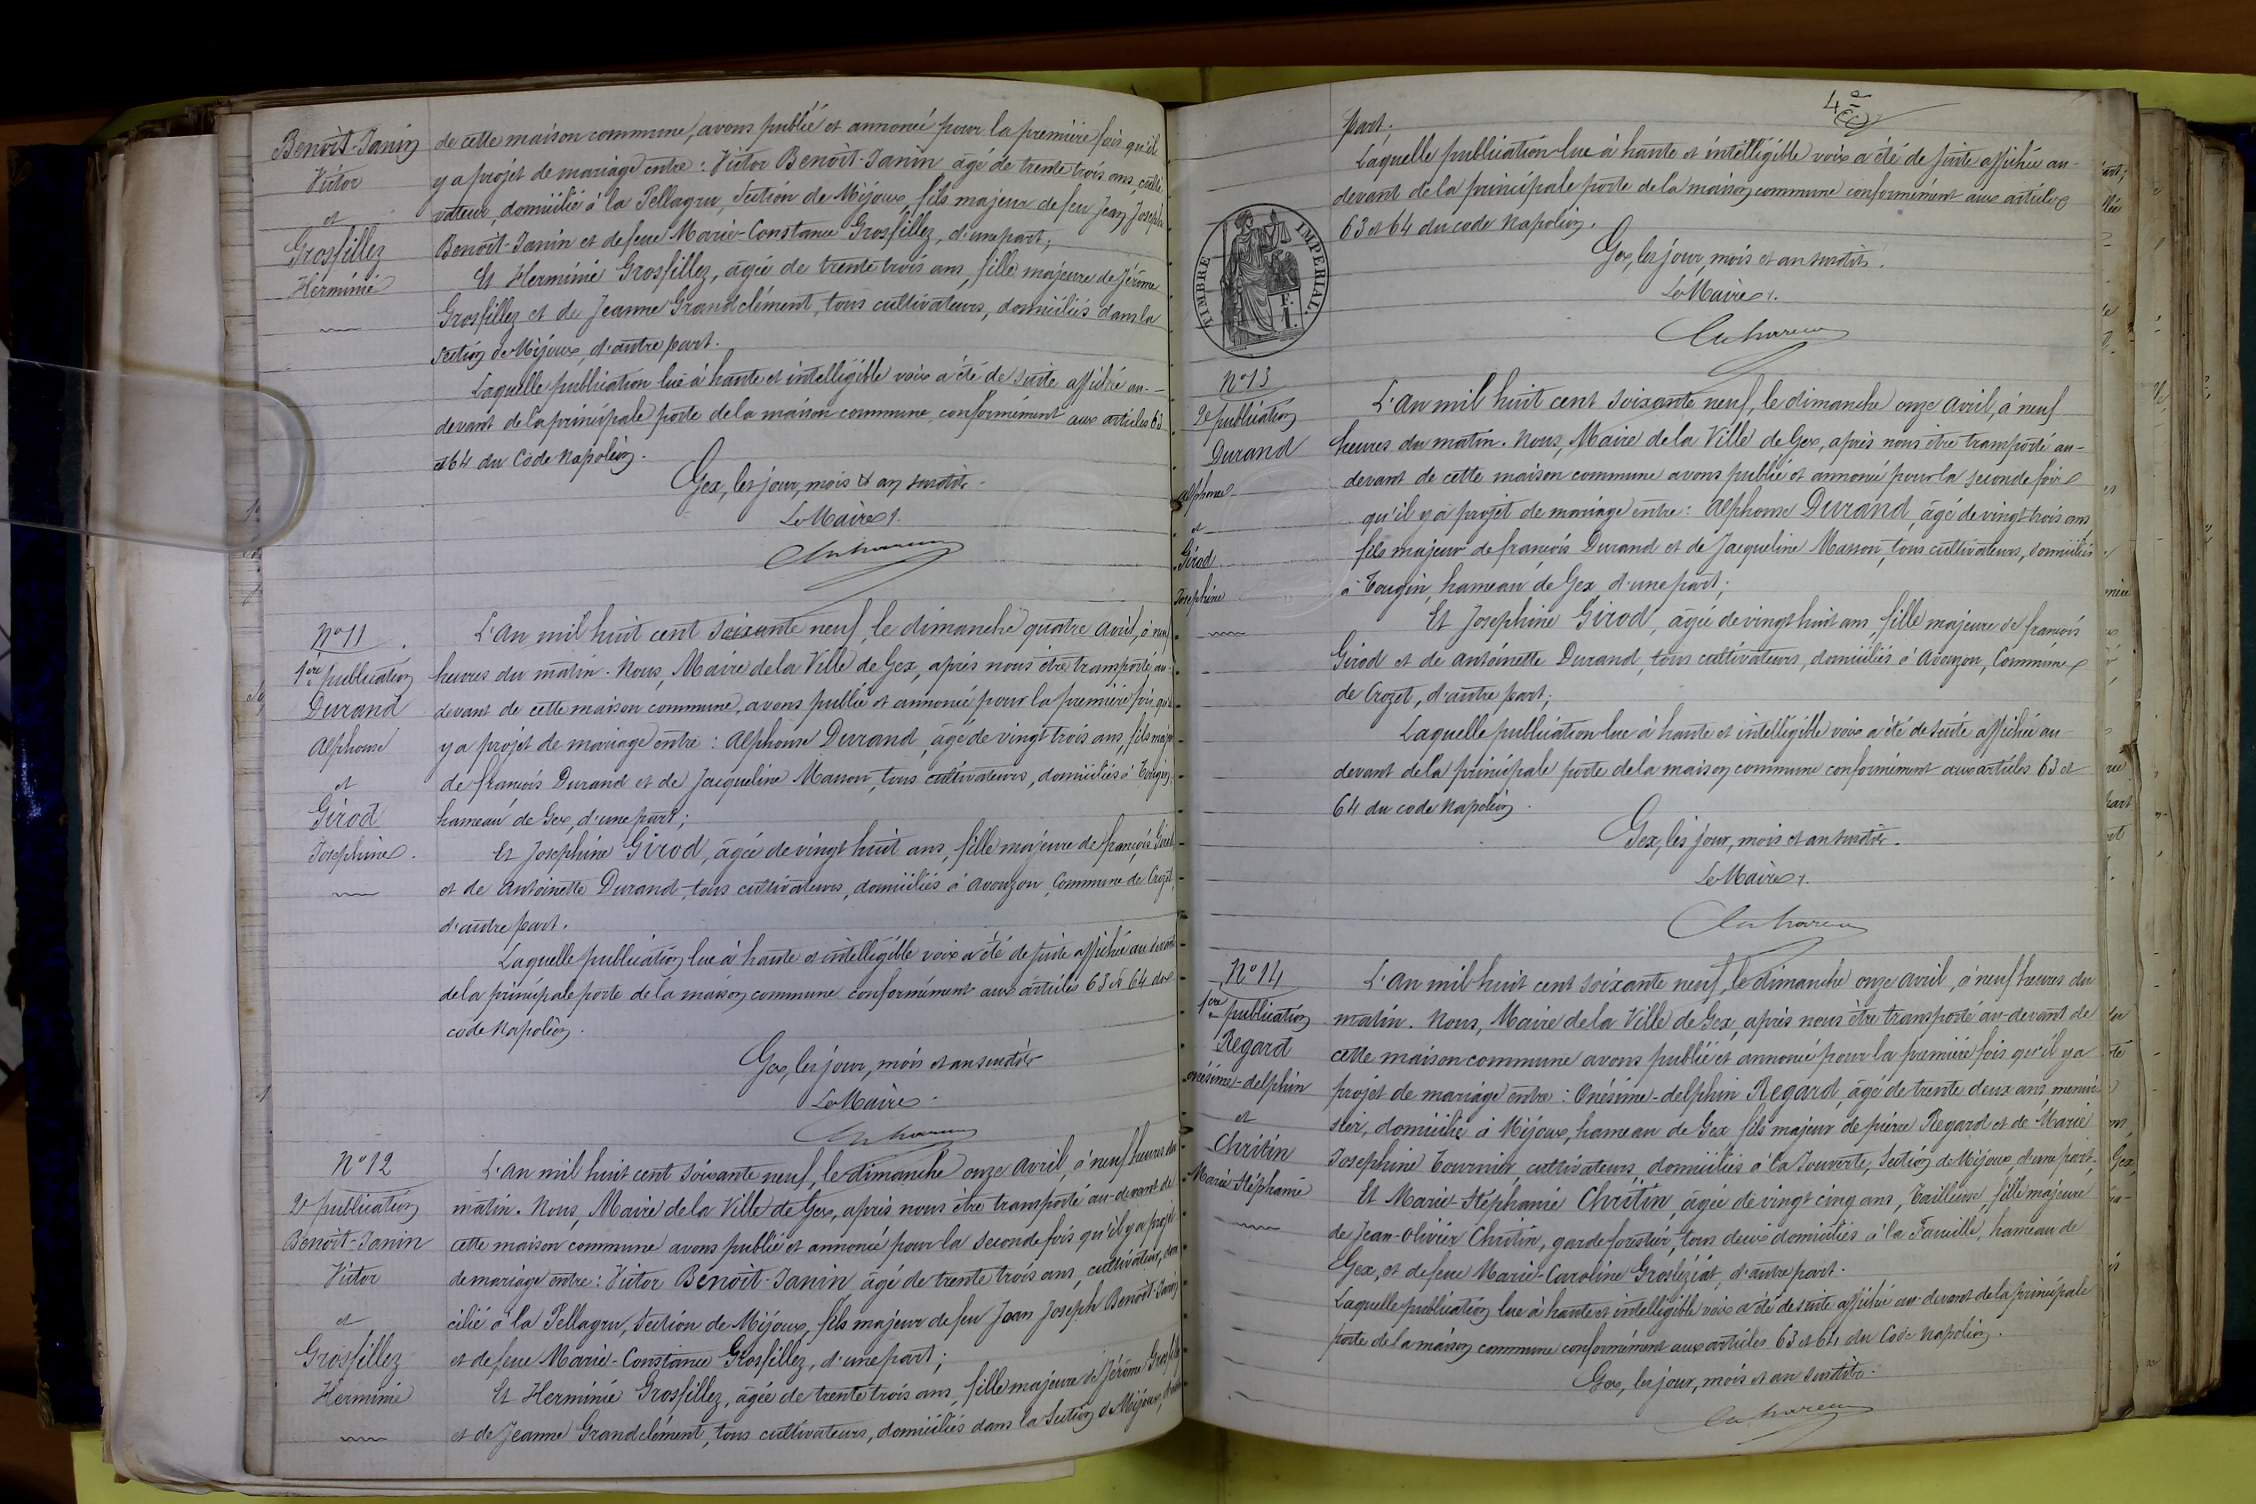 Benoît-Janin
Victor
et
Grosfillez
Herminie
de cette maison commune, avons publié et annoncé pour la première fois qu'il
y a projet de mariage entre : Victor Benoît-Janin âgé de trente trois ans, culti
vateur, domicilié à la Pellagru, Section de Mijoux, fils majeur de feu Jean Joseph
Benoît-Janin et de feue Marie-Constance Grosfillez, d'une part;
Et Herminie Grosfillez, âgée de trente trois ans, fille majeure de Jérôme
Grosfillez et de Jeanne Grandclément, tous cultivateurs, domiciliés dans la
Section de Mijoux, d'autre part.
Laquelle publication lue à haute et intelligible voix a été de suite affichée au-
devant de la principale porte de la maison commune conformément aux articles 63
et 64 du Code Napoléon.
Gex, les jour, mois et an susdits.
Le Maire
N° 11
1ère publication
Durand
Alphonse
et
Girod
Josephine
L'An mil huit cent soixante neuf, le dimanche quatre Avril, à neuf
heures du matin. Nous, Maire de la Ville de Gex, après nous être transporté au-
devant de cette maison commune, avons publié et annoncé pour la première fois qu'il
y a projet de mariage entre : Alphonse Durand, âgé de vingt trois ans, fils majeur
de françois Durand et de Jacqueline Masson, tous cultivateurs, domiciliés à Tougin,
hameau de Gex, d'une part;
Et Josephine Girod, âgée de vingt huit ans, fille majeure de françois Girod
et de Antoinette Durand, tous cultivateurs, domiciliés à Avouzon, Commune de Crozet,
d'autre part.
Laquelle publication lue à haute et intelligible voix a été de suite affichée au devant
de la principale porte de la maison commune conformément aux articles 63 et 64 du
code Napoléon.
Gex, les jour, mois et an susdits
Le Maire
N° 12
2e publication
Benoît-Janin
Victor
et
Grosfillez
Herminie
L'An mil huit cent soixante neuf, le dimanche onze Avril, à neuf heures du
matin. Nous, Maire de la Ville de Gex, après nous être transporté au-devant de
cette maison commune avons publié et annoncé pour la seconde fois qu'il y a projet
de mariage entre : Victor Benoît-Janin âgé de trente trois ans, cultivateur, dom
cilié à la Pellagru, Section de Mijoux, fils majeur de feu Jean Joseph Benoît-Janin
et de feue Marie-Constance Grosfillez, d'une part;
Et Herminie Grosfillez, âgée de trente trois ans, fille majeure de Jérôme Grosfillez
et de Jeanne Grandclément, tous cultivateurs, domiciliés dans la Section de Mijoux, d'autre
4e
part;
Laquelle publication lue à haute et intelligible voix a été de suite affichée au-
devant de la principale porte de la maison commune conformément aux articles
63 et 64 du code Napoléon.
Gex, les jour, mois et an susdits.
Le Maire
TIMBRE IMPERIAL.
E.
F.
N° 13
2e publication
Durand
Alphonse
et
Girod
Josephine
L'An mil huit cent soixante neuf, le dimanche onze Avril, à neuf
heures du matin. Nous, Maire de la Ville de Gex, après nous être transporté au-
devant de cette maison commune avons publié et annoncé pour la seconde fois
qu'il y a projet de mariage entre : Alphonse Durand, âgé de vingt trois ans
fils majeur de françois Durand et de Jacqueline Masson, tous cultivateurs, domiciliés
à Tougin, hameau de Gex d'une part;
Et Josephine Girod, âgée de vingt huit ans, fille majeure de françois
Girod et de Antoinette Durand, tous cultivateurs, domiciliés à Avouzon, Commune
de Crozet, d'autre part;
Laquelle publication lue à haute et intelligible voix a été de suite affichée au-
devant de la principale porte de la maison commune conformément aux articles 63 et
64 du code Napoléon.
Gex, les jour, mois et an susdits.
Le Maire
N° 14
1ère publication
Regard
onésime-delphin
et
Christin
Marie Stéphanie
L'An mil huit cent soixante neuf, le dimanche onze Avril, à neuf heures du
matin. Nous, Maire de la Ville de Gex, après nous être transporté au-devant de
cette maison commune avons publié et annoncé pour la première fois qu'il y a
projet de mariage entre : Onésime-delphin Regard, âgé de trente deux ans, menui-
sier, domicilié à Mijoux, hameau de Gex fils majeur de pierre Regard et de Marie
Josephine Tournier, cultivateurs, domiciliés à la Jouverte, Section de Mijoux, d'une part.
Et Marie Stéphanie Christin, âgée de vingt cinq ans, Tailleuse, fille majeure
de Jean-Olivier Christin, garde forestier, tous deux domiciliés à la Faucille, hameau de
Gex, et de feue Marie-Caroline Grosléziat, d'autre part.
Laquelle publication lue à haute et intelligible voix a été de suite affichée au-devant de la principale
porte de la maison commune conformément aux articles 63 et 64 du Code Napoléon.
Gex, les jour, mois et an susdits.